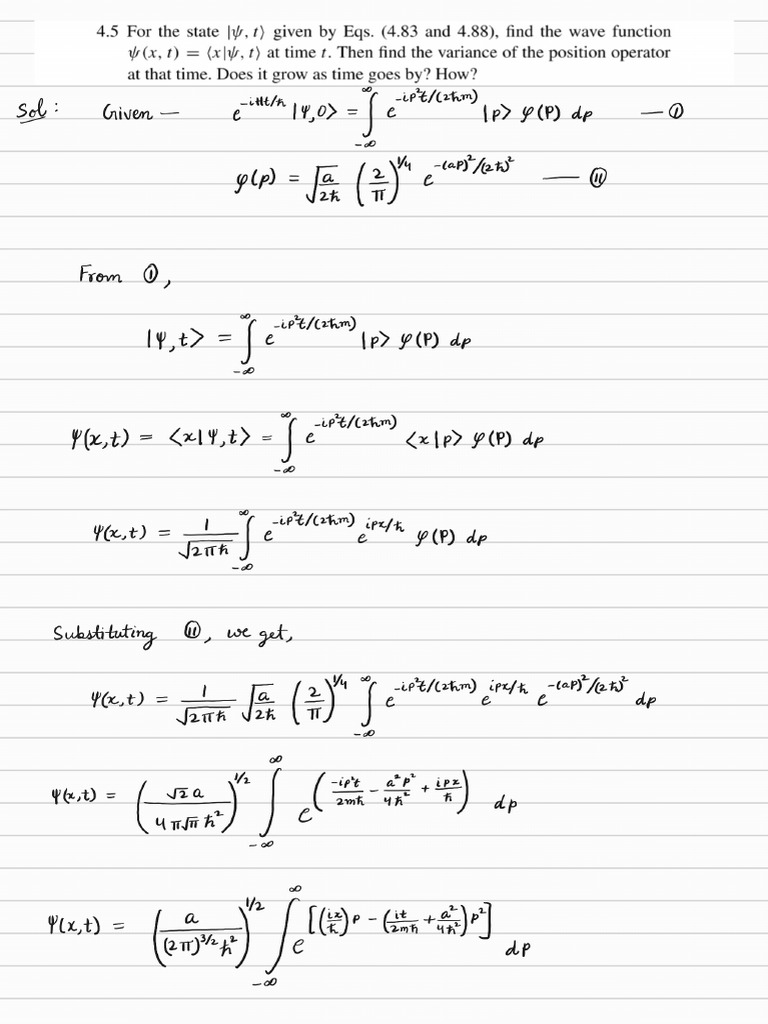 4.5 For the state |ψ, t⟩ given by Eqs. (4.83 and 4.88), find the wave function
ψ(x, t) = ⟨x|ψ, t⟩ at time t. Then find the variance of the position operator
at that time. Does it grow as time goes by? How?
Sol : Given — e^{-iHt/ħ} |Ψ,0> = ∫_{-∞}^{∞} e^{-ip²t/(2ħm)} |p> φ(P) dp — Ⓘ
φ(p) = √(a/2ħ) (2/π)^{1/4} e^{-(ap)²/(2ħ)²} — Ⓘ︎Ⓘ
From Ⓘ,
|Ψ,t> = ∫_{-∞}^{∞} e^{-ip²t/(2ħm)} |p> φ(P) dp
Ψ(x,t) = <x|Ψ,t> = ∫_{-∞}^{∞} e^{-ip²t/(2ħm)} <x|p> φ(P) dp
Ψ(x,t) = 1/√(2πħ) ∫_{-∞}^{∞} e^{-ip²t/(2ħm)} e^{ipx/ħ} φ(P) dp
Substituting Ⓘ︎Ⓘ, we get,
Ψ(x,t) = 1/√(2πħ) √(a/2ħ) (2/π)^{1/4} ∫_{-∞}^{∞} e^{-ip²t/(2ħm)} e^{ipx/ħ} e^{-(ap)²/(2ħ)²} dp
Ψ(x,t) = (√2 a / 4π√π ħ²)^{1/2} ∫_{-∞}^{∞} e^{(-ip²t/2mħ - a²p²/4ħ² + ipx/ħ)} dp
Ψ(x,t) = (a / (2π)^{3/2} ħ²)^{1/2} ∫_{-∞}^{∞} e^{[(ix/ħ)p - (it/2mħ + a²/4ħ²)p²]} dp